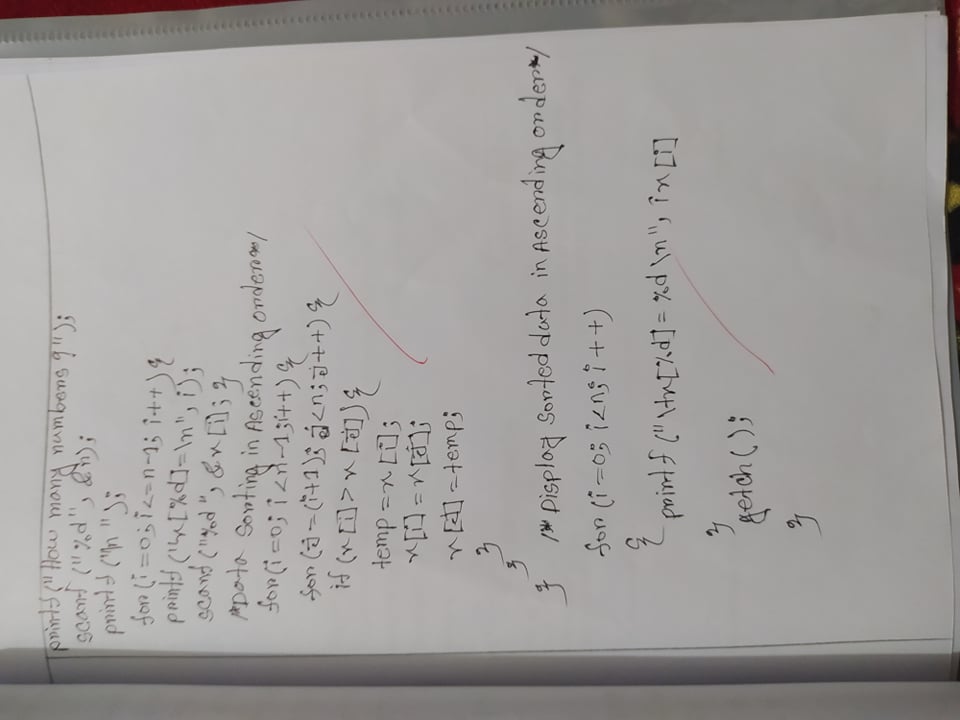 printf("How many numbers6");
scanf("%d", &n);
printf("\n");
for(i=0; i<=n-1; i++){
printf("x[%d]=\n", i);
scanf("%d", &x[i]; }
/*Data Sorting in Ascending order*/
for(i=0; i<n-1; i++){
for(j=(i+1); j<n; j++){
if (x[i]>x[j]){
temp=x[i];
x[i]=x[j];
x[j]=temp;
}
}
}
/*Display sorted data in Ascending order*/
for(i=0; i<n; i++)
{
printf("\tx[%d]=%d\n", ix[i]
}
getch();
}